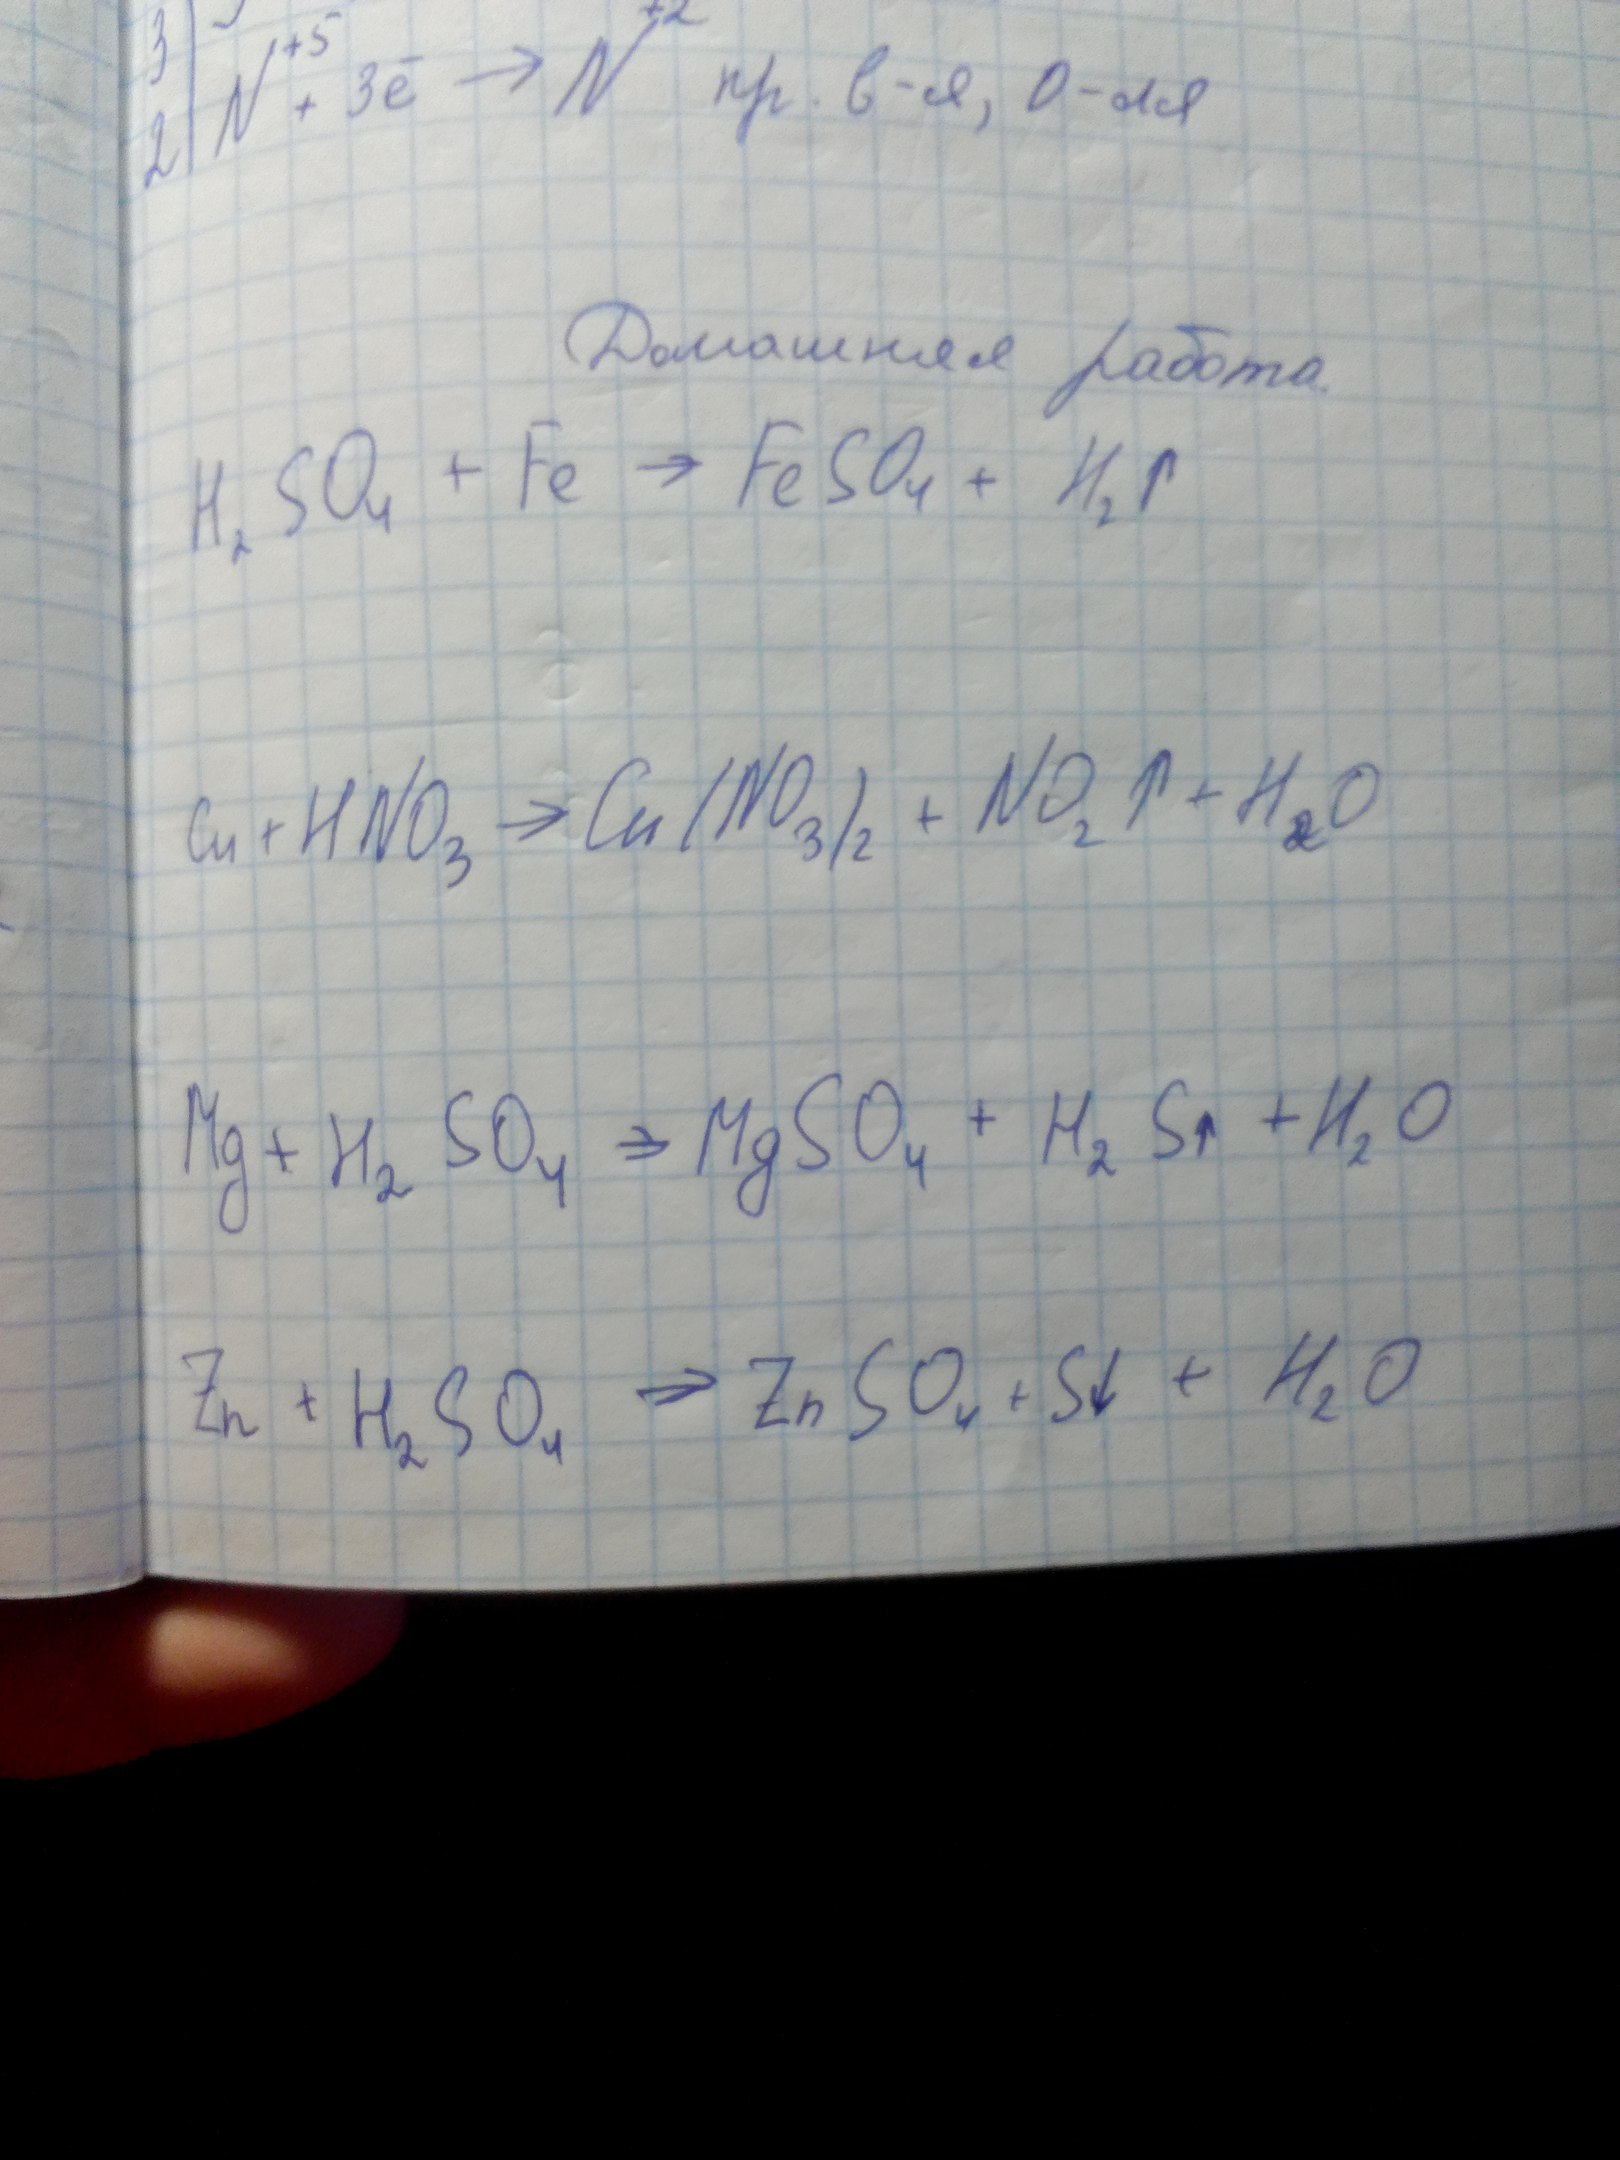 3
N⁺⁵ + 3ē → N⁺² пр. в-я, о-ля
2
Домашняя работа.
H₂SO₄ + Fe → FeSO₄ + H₂↑
Cu + HNO₃ → Cu(NO₃)₂ + NO₂↑ + H₂O
Mg + H₂SO₄ → MgSO₄ + H₂S↑ + H₂O
Zn + H₂SO₄ → ZnSO₄ + S↓ + H₂O